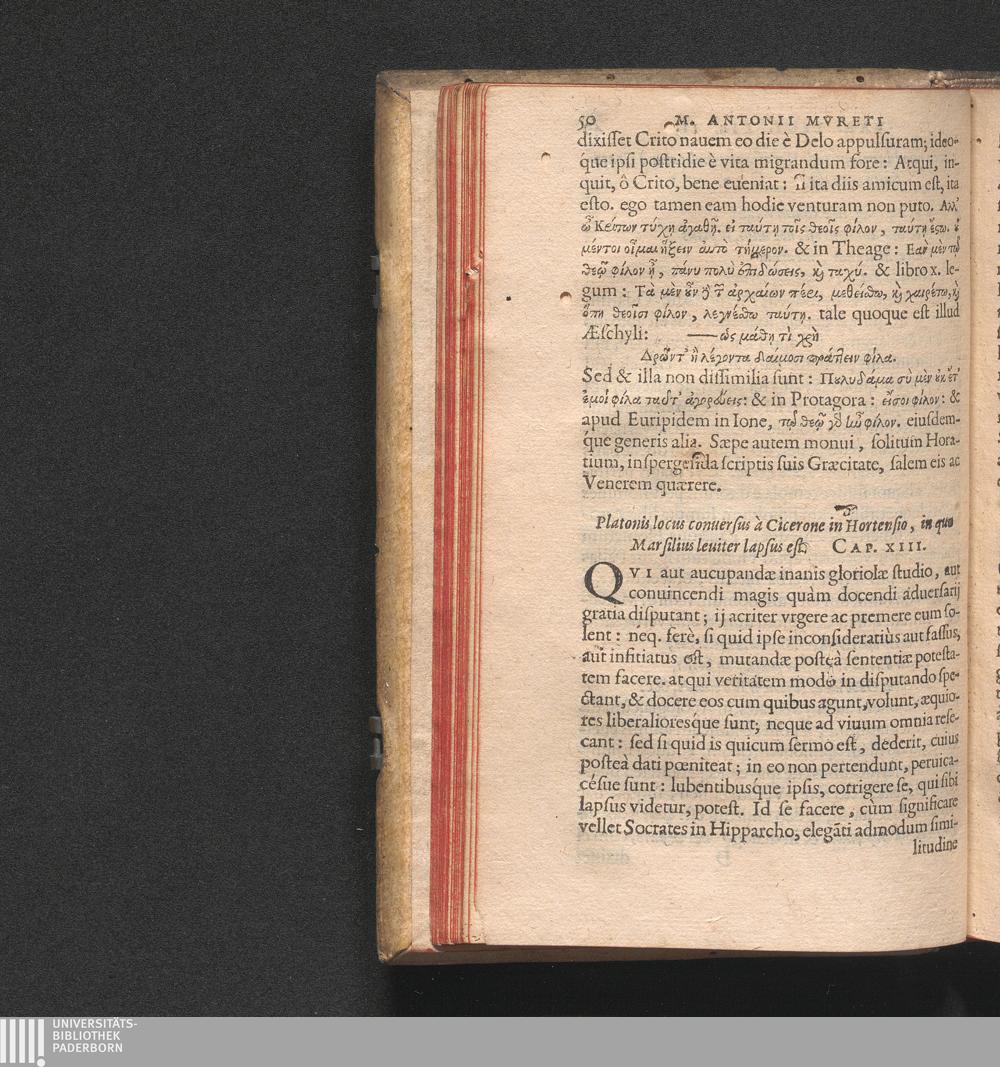 50 M. ANTONII MVRETI
dixisset Crito nauem eo die è Delo appulsuram; ideo-
que ipsi postridie è vita migrandum fore: Atqui, in-
quit, ô Crito, bene eueniat: si ita diis amicum est, ita
esto. ego tamen eam hodie venturam non puto. Ἀλλ'
ὦ Κρίτων τύχῃ ἀγαθῇ. εἰ ταύτῃ τοῖς θεοῖς φίλον, ταύτῃ ἔςω. οὐ
μέντοι οἶμαι ἥξειν αὐτὸ τήμερον. & in Theage: Ἐὰν μὲν τῷ
θεῷ φίλον ᾖ, πάνυ πολὺ ἐπιδώσεις, καὶ ταχύ. & libro x. le-
gum: Τὰ μὲν οὖν δὴ τῶν ἀρχαίων πέρι, μεθείσθω, καὶ χαιρέτω, καὶ
ὅπῃ θεοῖσι φίλον, λεγέσθω ταύτῃ. tale quoque est illud
Æschyli: —— ὡς μάθῃ τί χρὴ
Δρῶντ' ἢ λέγοντα δαίμοσι πράττειν φίλα.
Sed & illa non dissimilia sunt: Πουλυδάμα σὺ μὲν οὐκ ἔτ'
ἐμοὶ φίλα ταῦτ' ἀγορεύεις: & in Protagora: εἴ σοι φίλον: &
apud Euripidem in Ione, τῷ θεῷ γὰρ ἦν φίλον. eiusdem-
que generis alia. Sæpe autem monui, solitum Hora-
tium, inspergenda scriptis suis Græcitate, salem eis ac
Venerem quærere.
Platonis locus conuersus à Cicerone in Hortensio, in quo
Marsilius leuiter lapsus est. CAP. XIII.
QVI aut aucupandæ inanis gloriolæ studio, aut
conuincendi magis quàm docendi aduersarij
gratia disputant; ij acriter vrgere ac premere eum so-
lent: neq. ferè, si quid ipse inconsideratiùs aut fassus,
aut infitiatus est, mutandæ posteà sententiæ potesta-
tem facere. at qui veritatem modò in disputando spe-
ctant, & docere eos cum quibus agunt, volunt, æquio-
res liberalioresque sunt; neque ad viuum omnia rese-
cant: sed si quid is quicum sermo est, dederit, cuius
posteà dati pœniteat; in eo non pertendunt, peruica-
césue sunt: lubentibusque ipsis, corrigere se, qui sibi
lapsus videtur, potest. Id se facere, cùm significare
vellet Socrates in Hipparcho, elegāti admodum simi-
litudine
UNIVERSITÄTS-
BIBLIOTHEK
PADERBORN